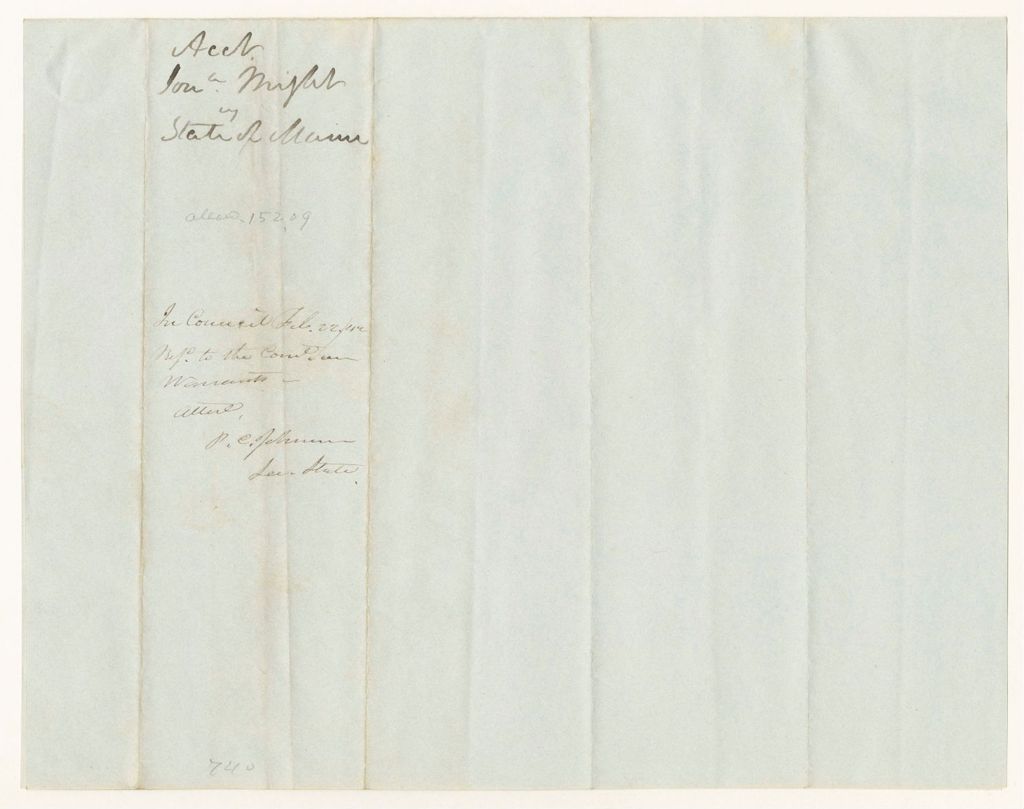 Acct.
Jona. Wright
vs
State of Maine
allowed. 152.09
In Council Feb. 22, 1842
Refd. to the Comtee on
Warrants –
Attest,
P. C. Johnson
Sec. State.
740